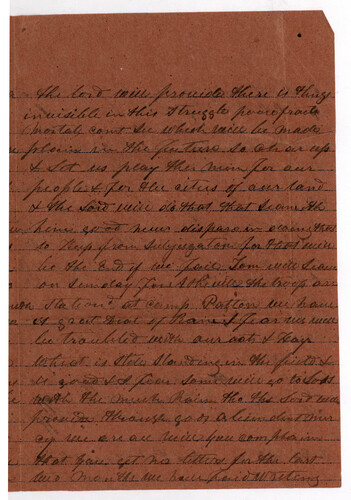 the lord will provide there is things
invisible in this Struggle poor frail
mortals cant See which will be made
plain in the future So chear up
& let us play the men for our
people & for the cities of our land
& the Lord will do that that Seemeth
him good never dispare in
to keep from Subjugation for that will
be the End if we fail Tom will Leave
on Sunday for the troops are
Stationed at camp Patton we have
A great deal of Rain I fear we will
be troubled with our oats & hay
Wheat is Still Standing in the field &
is good & I fear Some will go to loss
with the much Rain the Lord will
provide through gods abundant mer
cy we are all well you complain
that you get no letters for the last
two months we have quit Writing